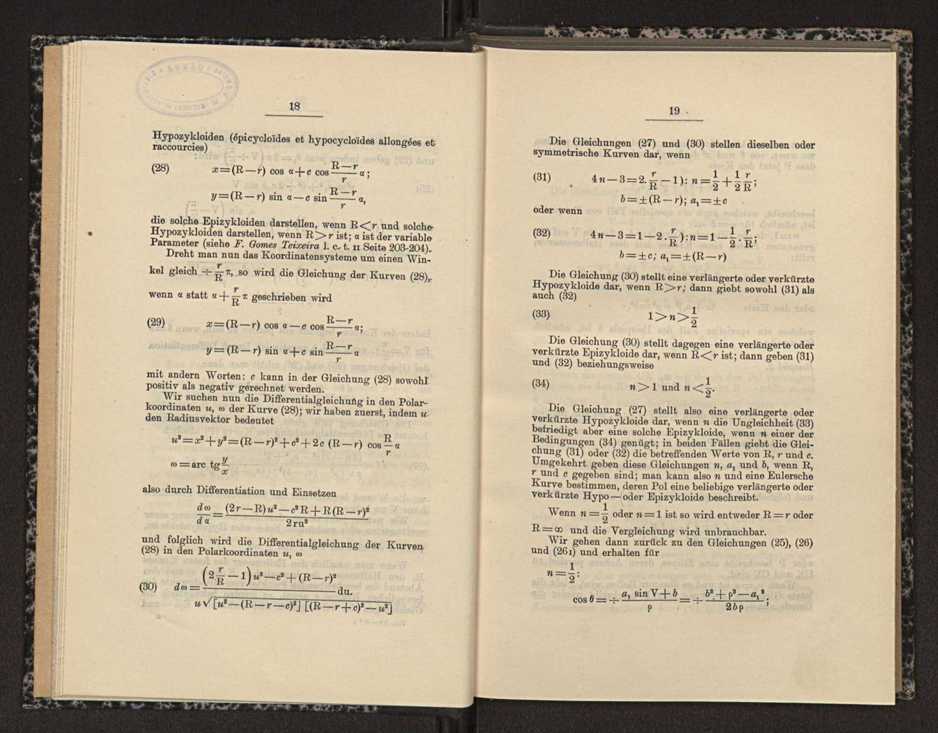 18
Hypozykloiden (épicycloïdes et hypocycloïdes allongées et
raccourcies)
(28) x=(R—r) cos α+c cos (R—r)/r α;
y=(R—r) sin α—c sin (R—r)/r α,
die solche Epizykloiden darstellen, wenn R<r und solche
Hypozykloiden darstellen, wenn R>r ist; α ist der variable
Parameter (siehe F. Gomes Teixeira l. c. t. II Seite 203-204).
Dreht man nun das Koordinatensysteme um einen Win-
kel gleich ÷ r/R π, so wird die Gleichung der Kurven (28),
wenn α statt α + r/R π geschrieben wird
(29) x=(R—r) cos α—c cos (R—r)/r α;
y=(R—r) sin α+c sin (R—r)/r α
mit andern Worten: c kann in der Gleichung (28) sowohl
positiv als negativ gerechnet werden.
Wir suchen nun die Differentialgleichung in den Polar-
koordinaten u, ω der Kurve (28); wir haben zuerst, indem u
den Radiusvektor bedeutet
u²=x²+y²=(R—r)²+c²+2c (R—r) cos R/r α
ω=arc tg y/x
also durch Differentiation und Einsetzen
dω/dα = ((2r—R)u²—c²R+R(R—r)²)/(2ru²)
und folglich wird die Differentialgleichung der Kurven
(28) in den Polarkoordinaten u, ω
(30) dω = ((2 r/R —1)u²—c²+(R—r)²)/(u√[u²—(R—r—c)²] [(R—r+c)²—u²]) du.
19
Die Gleichungen (27) und (30) stellen dieselben oder
symmetrische Kurven dar, wenn
(31) 4n—3=2. r/R —1): n=1/2+1/2 r/R;
b=±(R—r); a₁=±c
oder wenn
(32) 4n—3=1—2. r/R):n=1—1/2. r/R;
b=±c; a₁=±(R—r)
Die Gleichung (30) stellt eine verlängerte oder verkürzte
Hypozykloide dar, wenn R>r; dann giebt sowohl (31) als
auch (32)
(33) 1>n>1/2
Die Gleichung (30) stellt dagegen eine verlängerte oder
verkürzte Epizykloide dar, wenn R<r ist; dann geben (31)
und (32) beziehungsweise
(34) n>1 und n<1/2.
Die Gleichung (27) stellt also eine verlängerte oder
verkürzte Hypozykloide dar, wenn n die Ungleichheit (33)
befriedigt aber eine solche Epizykloide, wenn n einer der
Bedingungen (34) genügt; in beiden Fällen giebt die Glei-
chung (31) oder (32) die betreffenden Werte von R, r und c.
Umgekehrt geben diese Gleichungen n, a₁ und b, wenn R,
r und c gegeben sind; man kann also n und eine Eulersche
Kurve bestimmen, deren Pol eine beliebige verlängerte oder
verkürzte Hypo—oder Epizykloide beschreibt.
Wenn n=1/2 oder n=1 ist so wird entweder R=r oder
R=∞ und die Vergleichung wird unbrauchbar.
Wir gehen dann zurück zu den Gleichungen (25), (26)
und (26₁) und erhalten für
n=1/2:
cos θ=÷ (a₁ sin V+b)/p = ÷ (b²+p²—a₁²)/(2bp);